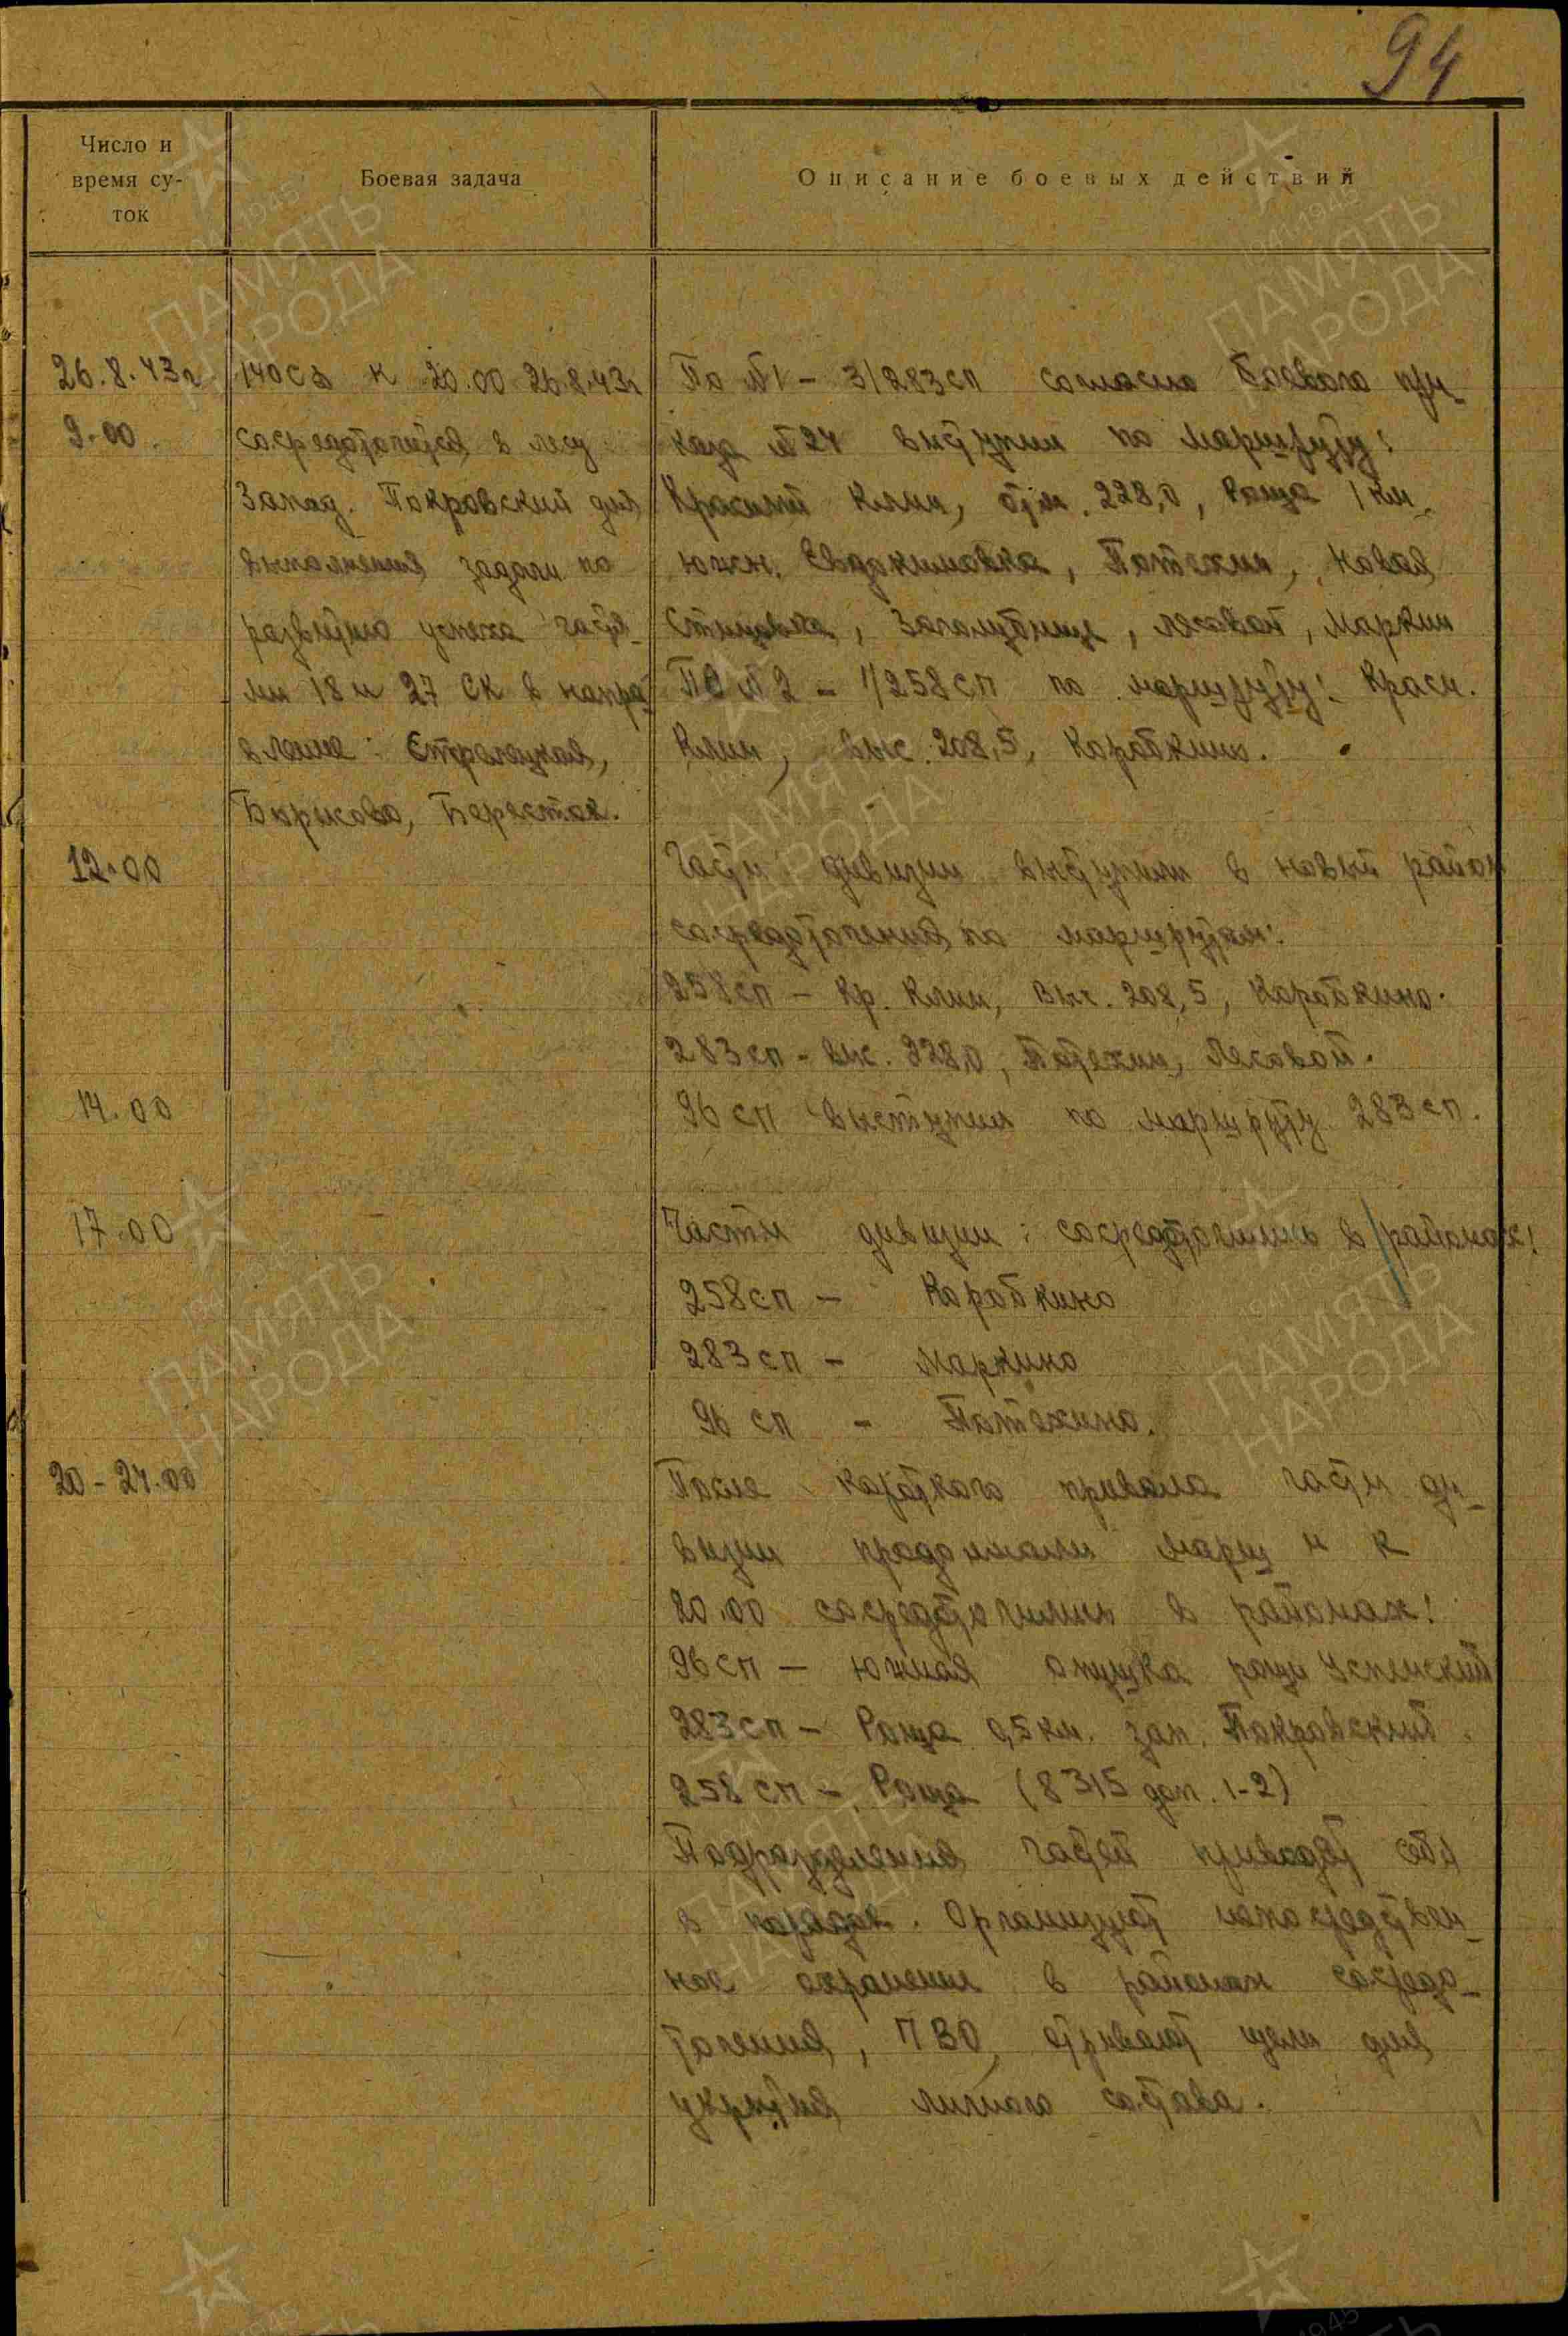 94
Число и
время су-
ток
Боевая задача
Описание боевых действий
26.8.43г
9.00.
140сд к 20.00 26.8.43г
сосредоточится в лесу
Запад. Покровский для
выполнения задачи по
развитию успеха частя-
ми 18 и 27 СК в напра-
вление: Стрелецкая,
Борисово, Бересток.
По №1 - 3/283сп согласно боевого при-
каза №24 выступил по маршруту:
Красный Клин, отм. 228,0, Роща 1 км.
южн. Евдокимовка, Потехин, Новая
, , Лесовой, Маркин
ПО №2 - 1/258СП по маршруту: Красн.
Клин, выс. 208,5, Коробкино.
12.00
Части дивизии выступили в новый район
сосредоточения по маршрутам:
258сп - Кр. Клин, Выс. 208,5, Коробкино.
283сп - Выс. 228,0, Потехин, Лесовой.
14.00
96 сп выступил по маршруту 283 сп.
17.00
Части дивизии: сосредоточились в районах:
258сп - Коробкино
283сп - Маркино
96 сп - Потехино.
20-24.00
После короткого привала части ди-
визии продолжали марш и к
20.00 сосредоточились в районах:
96сп - южная опушка рощи Успенский
283сп - Роща 0,5 км. зап. Покровский.
258 сп - Роща (8315 доп. 1-2)
Подразделения частей приводят себя
в порядок. Организуют непосредствен-
ное охранение в районах сосредо-
точения, ПВО, отрывают щели для
укрытия личного состава.
ПАМЯТЬ
НАРОДА
1941-1945